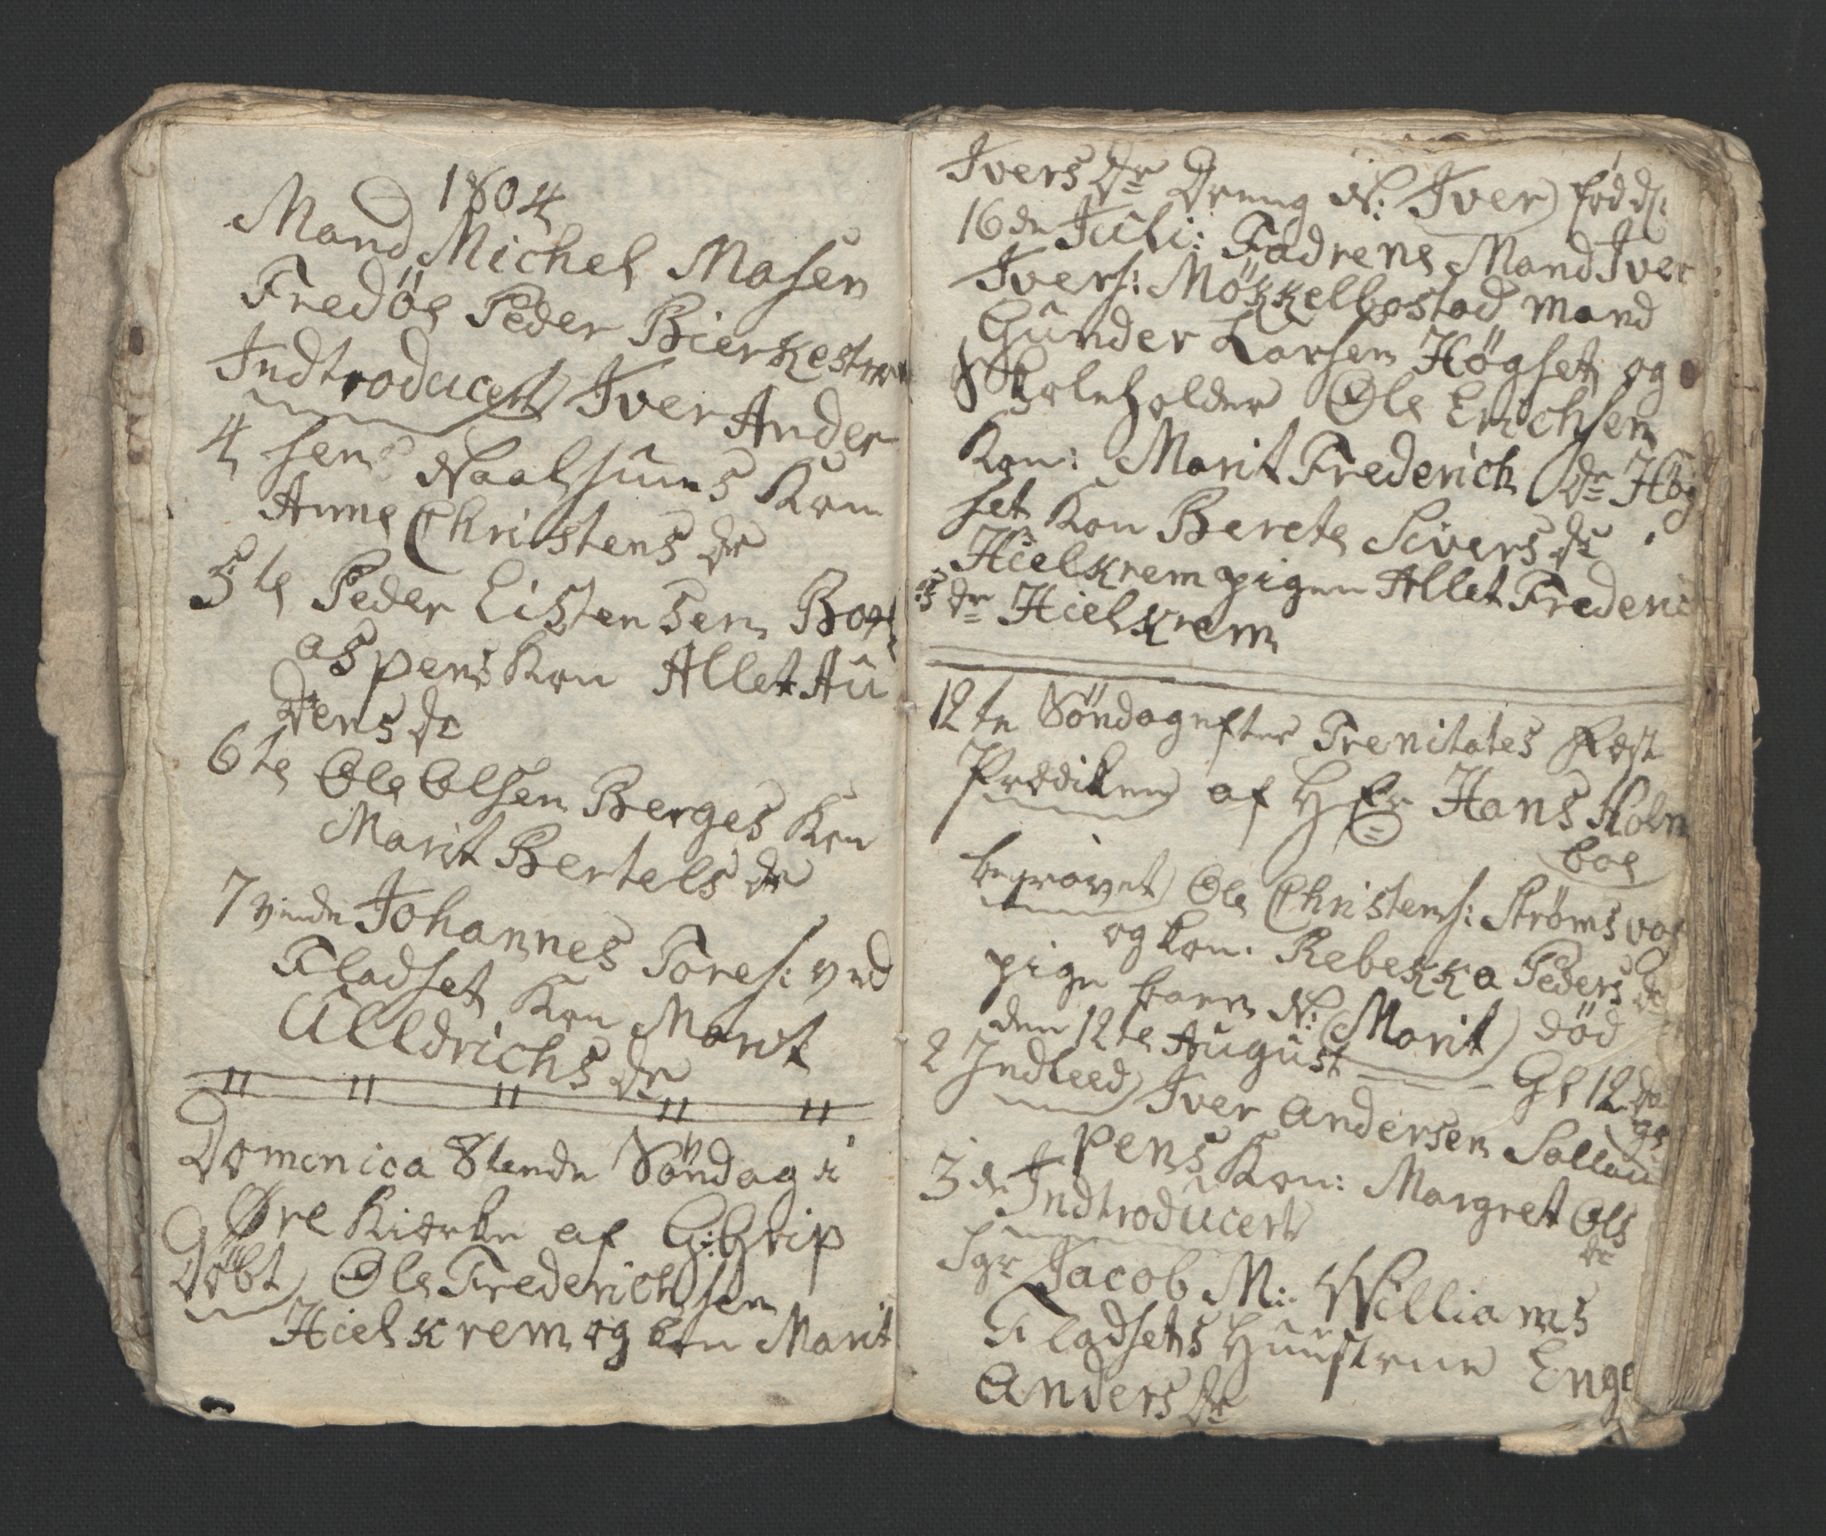 1804
Mand Michel Masen
Fredøe Peder Bierkestran
Indtroducert Iver Ander
4 sens Naalsuns Kon
Anne Christens dr
5te Peder Eistensen Boe
aspens Kon Allet Au
dens dr
6te Ole Olsen Berges Kon
Marit Bertels dr
7vende Johannes Tores: ved
Fladset Kon Marit
Ulldrichs dr
Domenica 8tende Söndag i
Øre Kierke af G: Grip
Döbt Ole Frederichsen
Hielkrem og kon Marit
Ivers dr Dreng N: Iver föd d:
16de Juli: Fadrene Mand Iver
Ivers: Mökkelbostad Mand
Gunder Larsen Høgset og
Skoleholder Ole Erichsen
Kon: Marit Frederich dr Høg
set Kon Berete Sivers dr
Hielkrem pigen Allet Frederic
s dr Hielkrem
12te Söndag efter Trenitates Fæst
Prædiken af Hr Hans Holm
boe
begravet Ole Christens: Strømsvag
og kon: Rebekka Peders dr
pige barn N: Marit død
den 12te August Gl 12 da
ge
2 Indleed Iver Andersen Sollau
pens Kon: Margret Ols
dr
3de Indtroducert
Sgr Jacob M: Williams
Fladsets Hustrue Enge
Anders dr